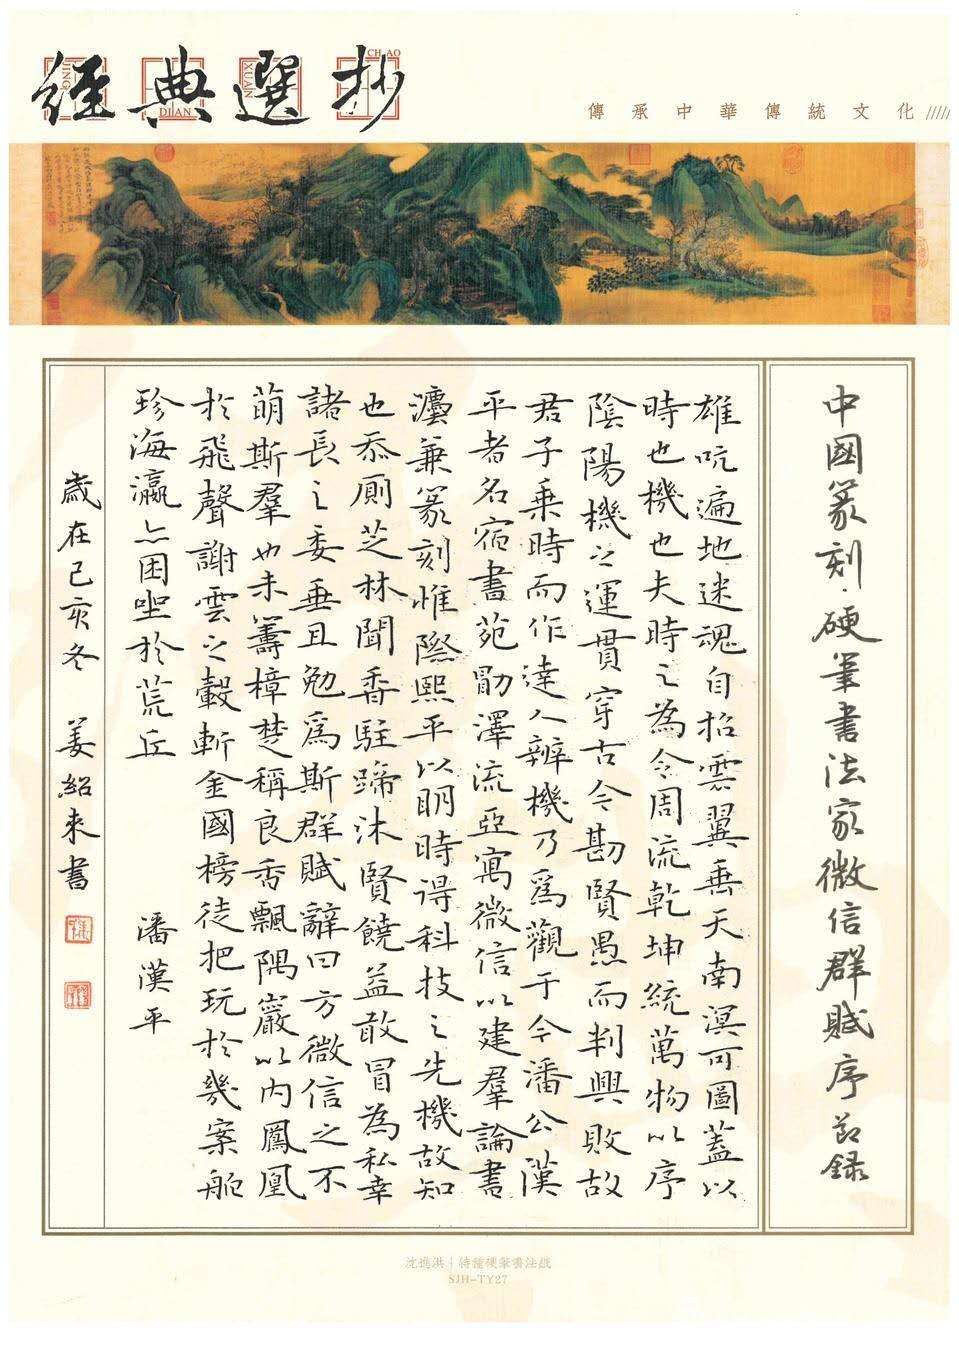 經典選抄
JING
DIAN
XUAN
CHAO
傳承中華傳統文化/////
中國篆刻·硬筆書法家微信群賦序節録
雄吭遍地迷魂自招雲翼垂天南溟可圖蓋以
時也機也夫時之為令周流乾坤統萬物以序
陰陽機之運貫穿古今勘賢愚而判興敗故
君子乗時而作達人辨機乃爲觀于今潘公漢
平者名宿書苑勛澤流亞寓微信以建羣論書
瀍兼篆刻惟際熙平以明時得科技之先機故知
也忝厕芝林聞香駐蹄沐賢饒益敢冒為私幸
諸長之委垂且勉爲斯群賦辭曰方微信之不
萌斯羣也未籌樟楚稱良香飄隅巖以内鳳凰
於飛聲謝雲之轂斬金國榜徒把玩於幾案舵
珍海瀛亦困坐於荒丘 潘漢平
歲在己亥冬 姜紹來書
沈進洪|特種硬筆書法紙
SJH-TY27